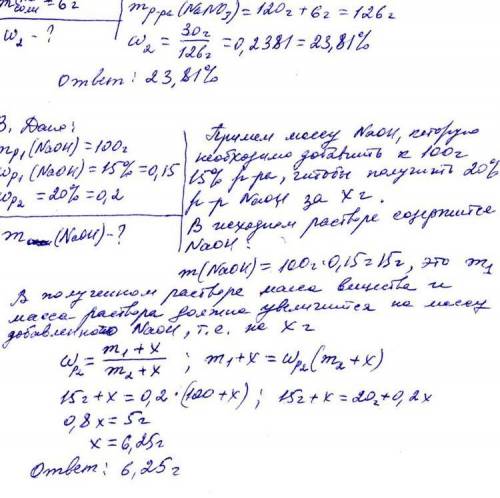 mсоли = 6г
ω₂ - ?
mр-ра (NaNO₃) = 120г + 6г = 126г
ω₂ = 30г/126г = 0,2381 = 23,81%
Ответ: 23,81%
3. Дано:
mр₁ (NaOH) = 100г
ωр₁ (NaOH) = 15% = 0,15
ωр₂ = 20% = 0,2
m (NaOH) - ?
Примем массу NaOH, которую
необходимо добавить к 100г
15% р-ра, чтобы получить 20%
р-р NaOH за xг.
В исходном растворе содержится
NaOH:
m(NaOH) = 100г·0,15 = 15г, это m₁
В полученном растворе масса вещества и
масса раствора должна увеличится на массу
добавленного NaOH, т.е. на xг
ωр₂ = m₁ + x / m₂ + x ; m₁ + x = ωр₂(m₂ + x)
15г + x = 0,2·(100 + x) ; 15г + x = 20г + 0,2x
0,8x = 5г
x = 6,25г
Ответ: 6,25г